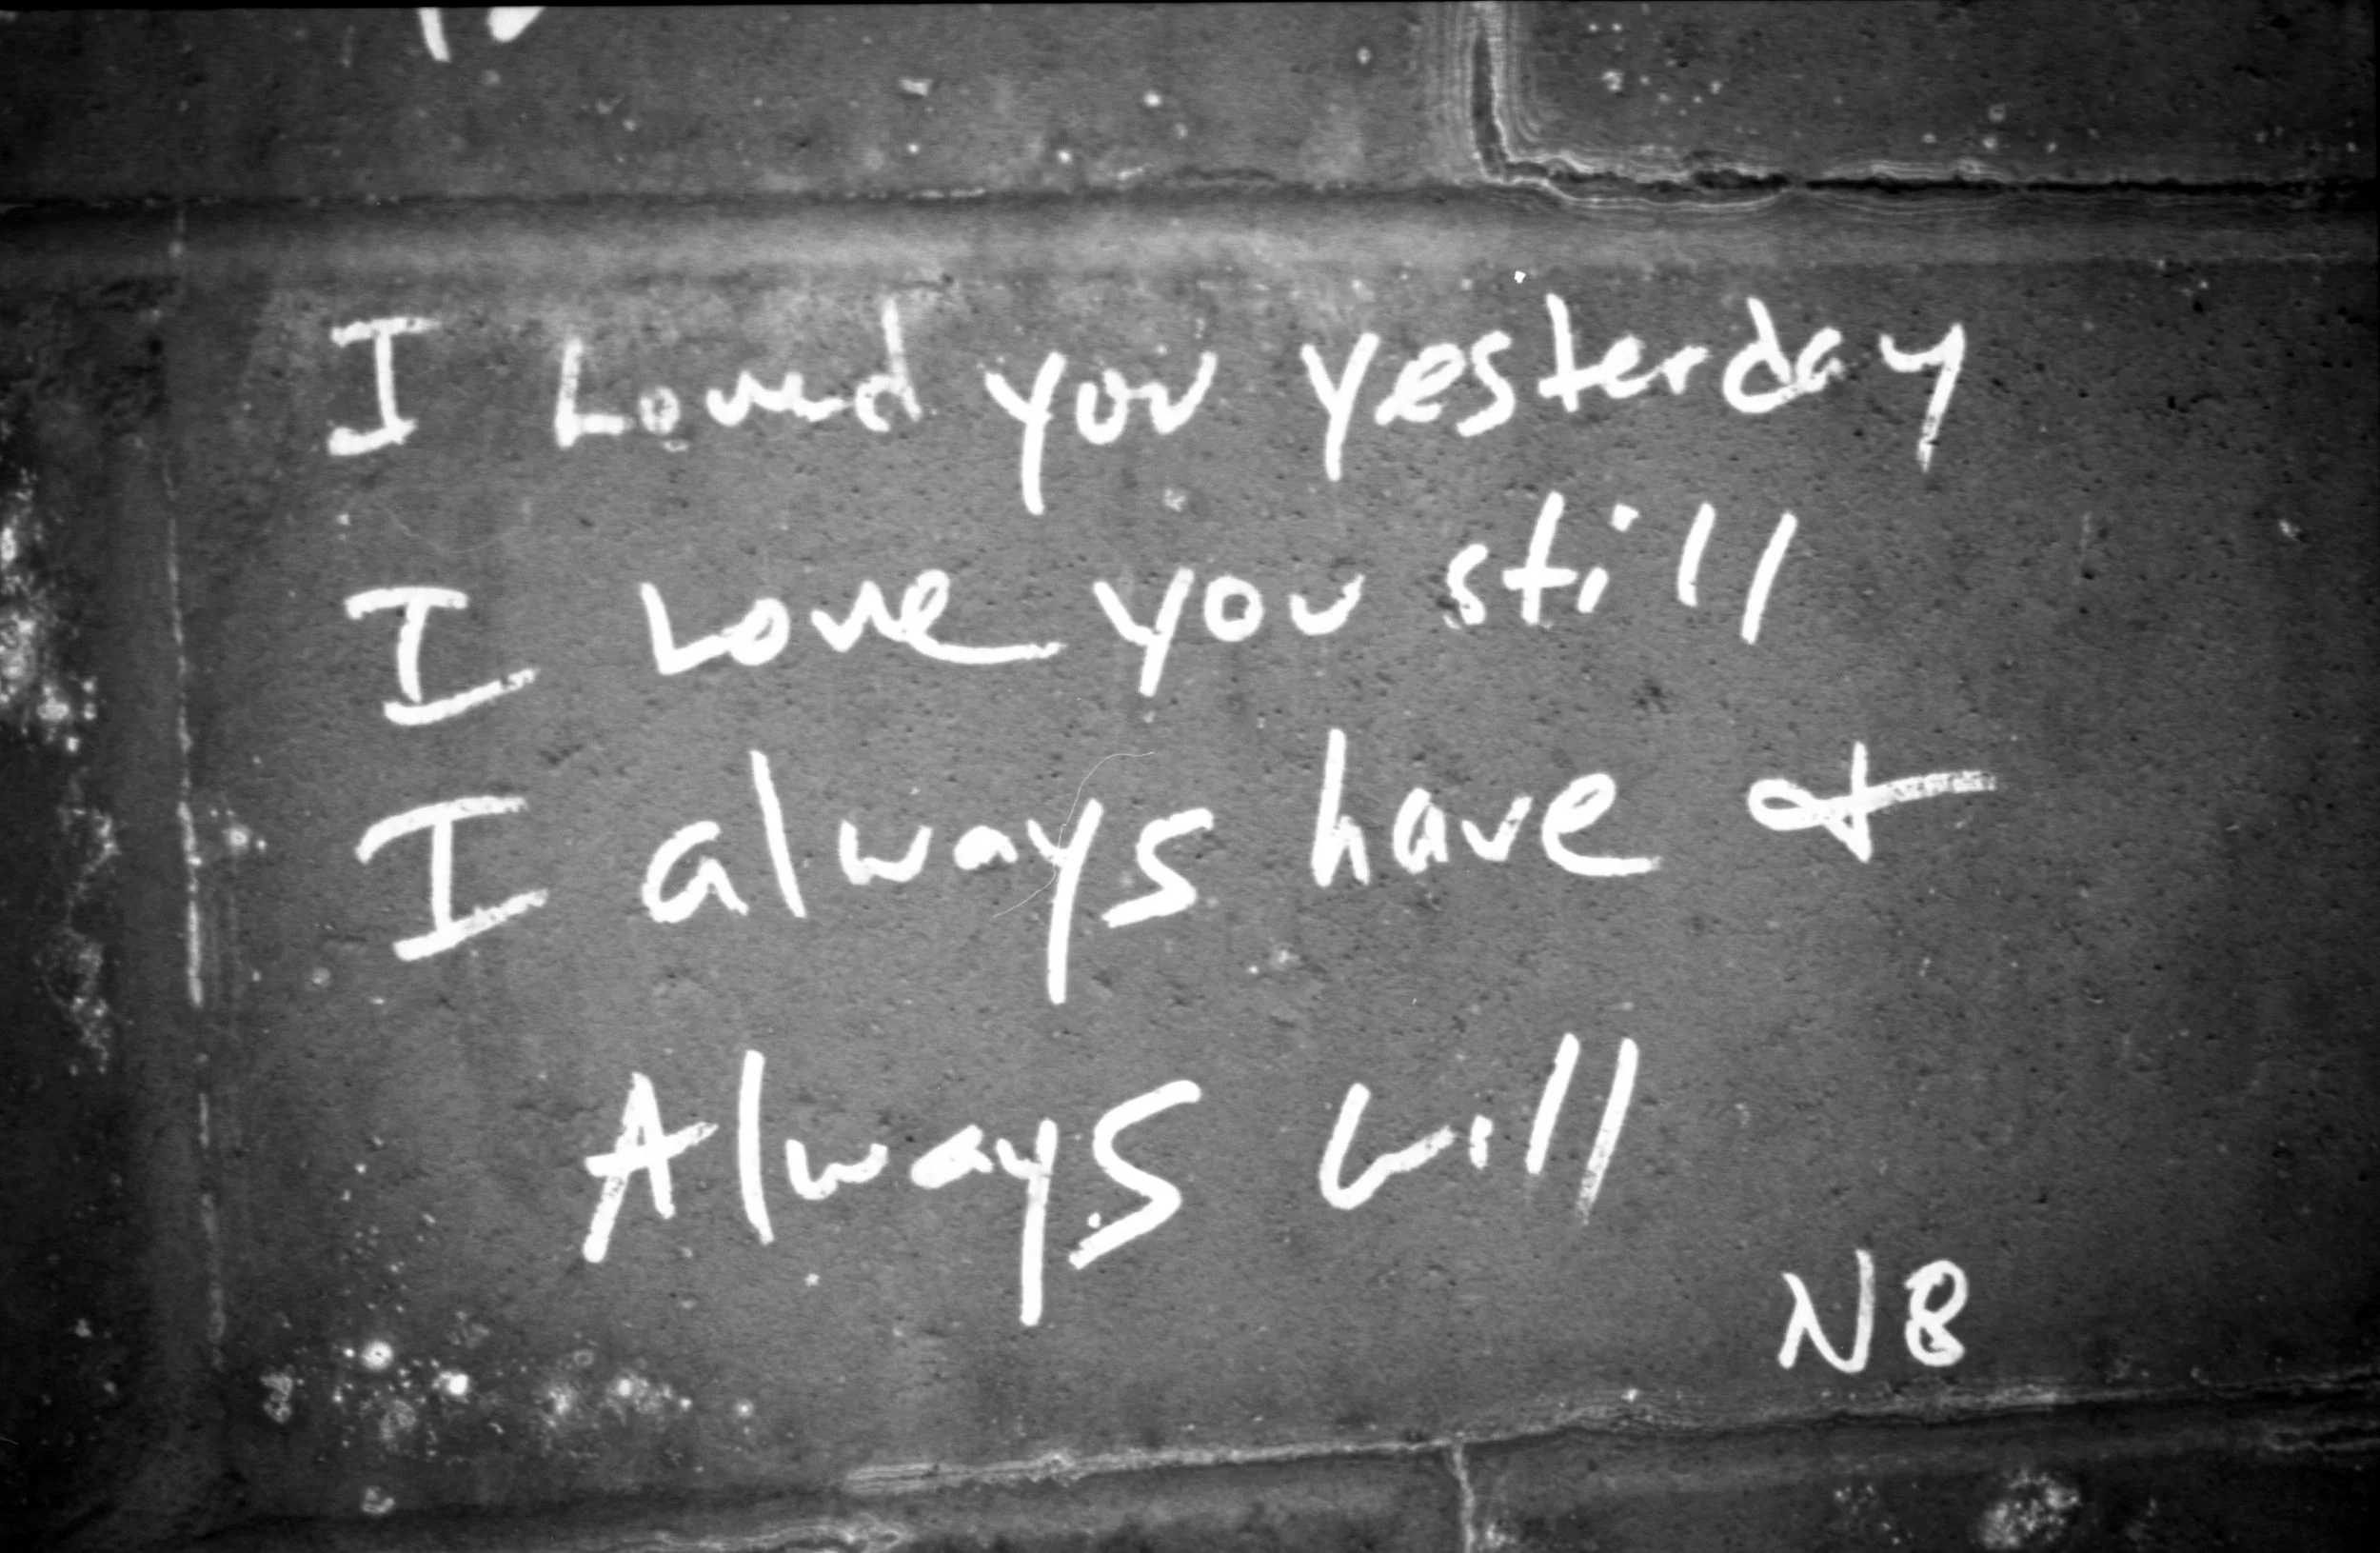 I Loved you yesterday
I Love you still
I always have &
Always will
NB